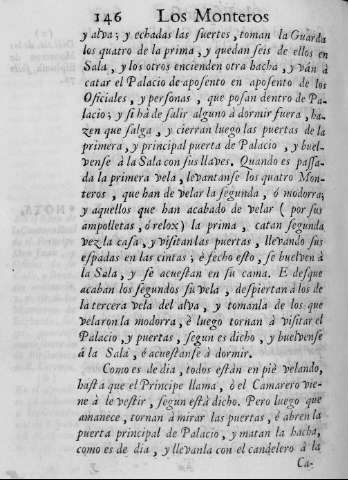 146 Los Monteros
y alva; y echadas las suertes, toman la Guarda
los quatro de la prima, y quedan seis de ellos en
Sala, y los otros encienden otra hacha, y ván à
catar el Palacio de aposento en aposento de los
Oficiales, y personas, que posan dentro de Pa-
lacio; y si hà de salir alguno à dormir fuera, ha-
zen que salga, y cierran luego las puertas de la
primera, y principal puerta de Palacio, y buel-
vense à la Sala con sus llaves. Quando es passa-
da la primera vela, levantanse los quatro Mon-
teros, que han de velar la segunda, ò modorra;
y aquellos que han acabado de velar (por sus
ampolletas, ò relox) la prima, catan segunda
vez la casa, y visitan las puertas, llevando sus
espadas en las cintas; è fecho esto, se buelven à
la Sala, y se acuestan en su cama. E desque
acaban los segundos su vela, despiertan à los de
la tercera vela del alva, y tomanla de los que
velaron la modorra, è luego tornan à visitar el
Palacio, y puertas, segun es dicho, y buelvense
á la Sala, è acuestanse à dormir.
Como es de dia, todos están en piè velando,
hasta que el Principe llama, ò el Camarero vie-
ne à le vestir, segun está dicho. Pero luego que
amanece, tornan à mirar las puertas, è abren la
puerta principal de Palacio, y matan la hacha,
como es de dia, y llevanla con el candelero à la
Ca-